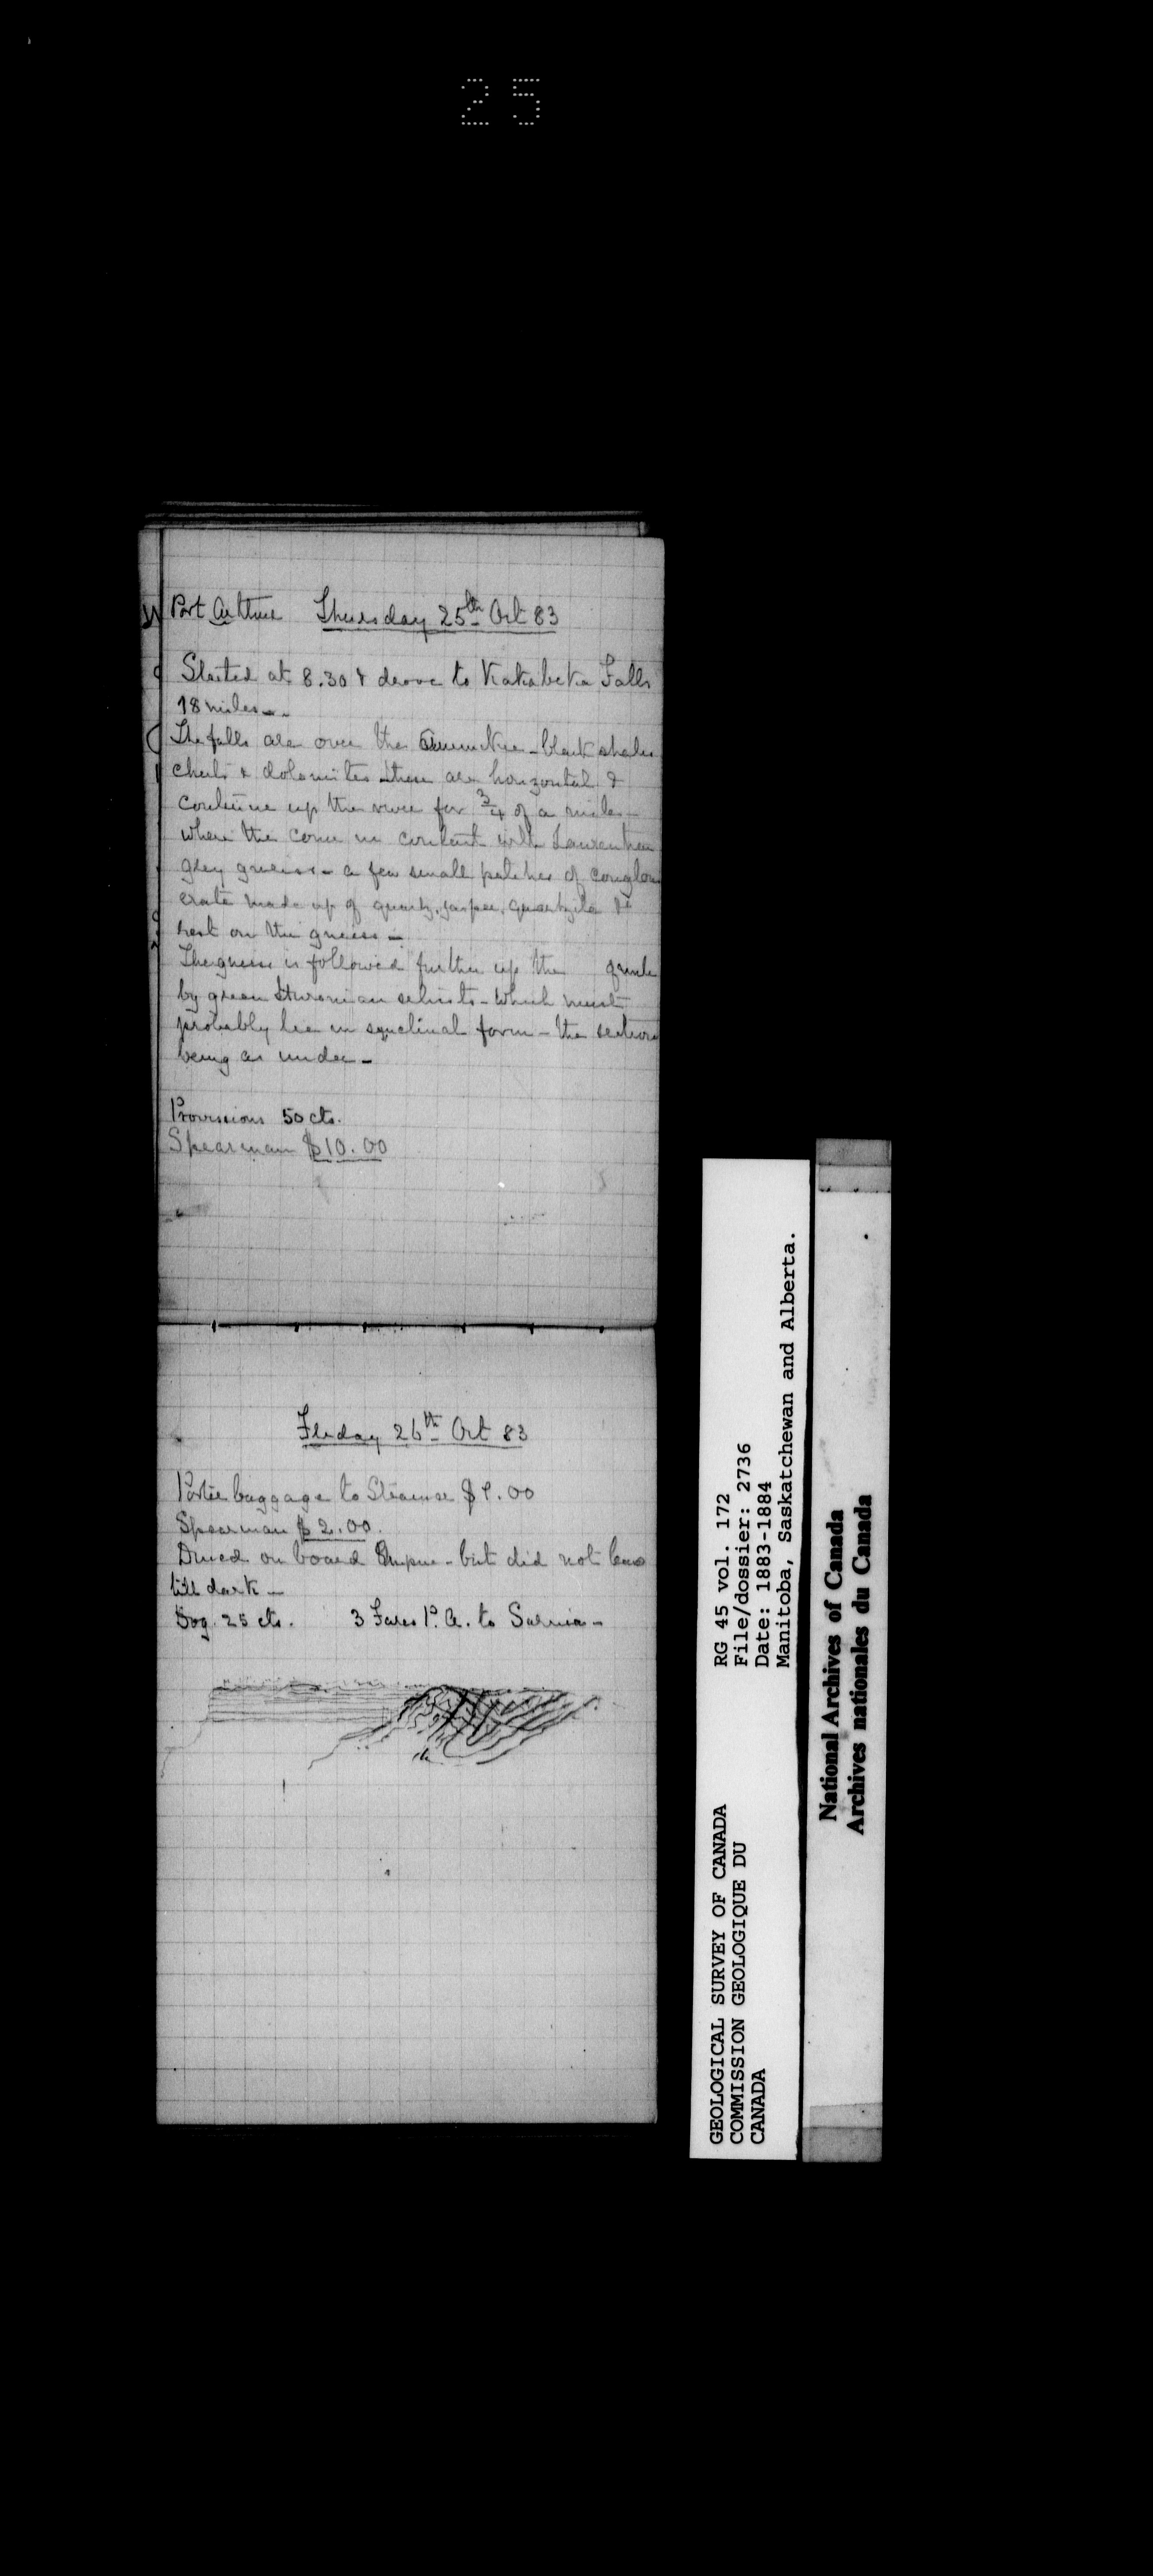 25
Port Arthur Thursday 25th Oct 83
Started at 8.30 & drove to Kakabeka Falls
18 miles -
The falls are over the Animikie - black shales
cherts & dolomites these are horizontal &
continue up the river for 3/4 of a mile -
where the come in contact with Laurentian
grey gneiss - a few small patches of conglom
erate made up of quartz, jasper, quartzite &c
rest on the gneiss -
The gneiss is followed further up the
by green Huronian schists - which must
probably lie in synclinal form - the section
being as under -
Provisions 50 cts.
Spearman $10.00
Friday 26th Oct 83
Porter baggage to Steamer $1.00
Spearman $2.00.
Dined on board Empire - but did not leave
till dark -
Dog 25 cts. 3 Fares P. A. to Sarnia -
RG 45 vol. 172
File/dossier: 2736
Date: 1883-1884
Manitoba, Saskatchewan and Alberta.
GEOLOGICAL SURVEY OF CANADA
COMMISSION GEOLOGIQUE DU
CANADA
National Archives of Canada
Archives nationales du Canada